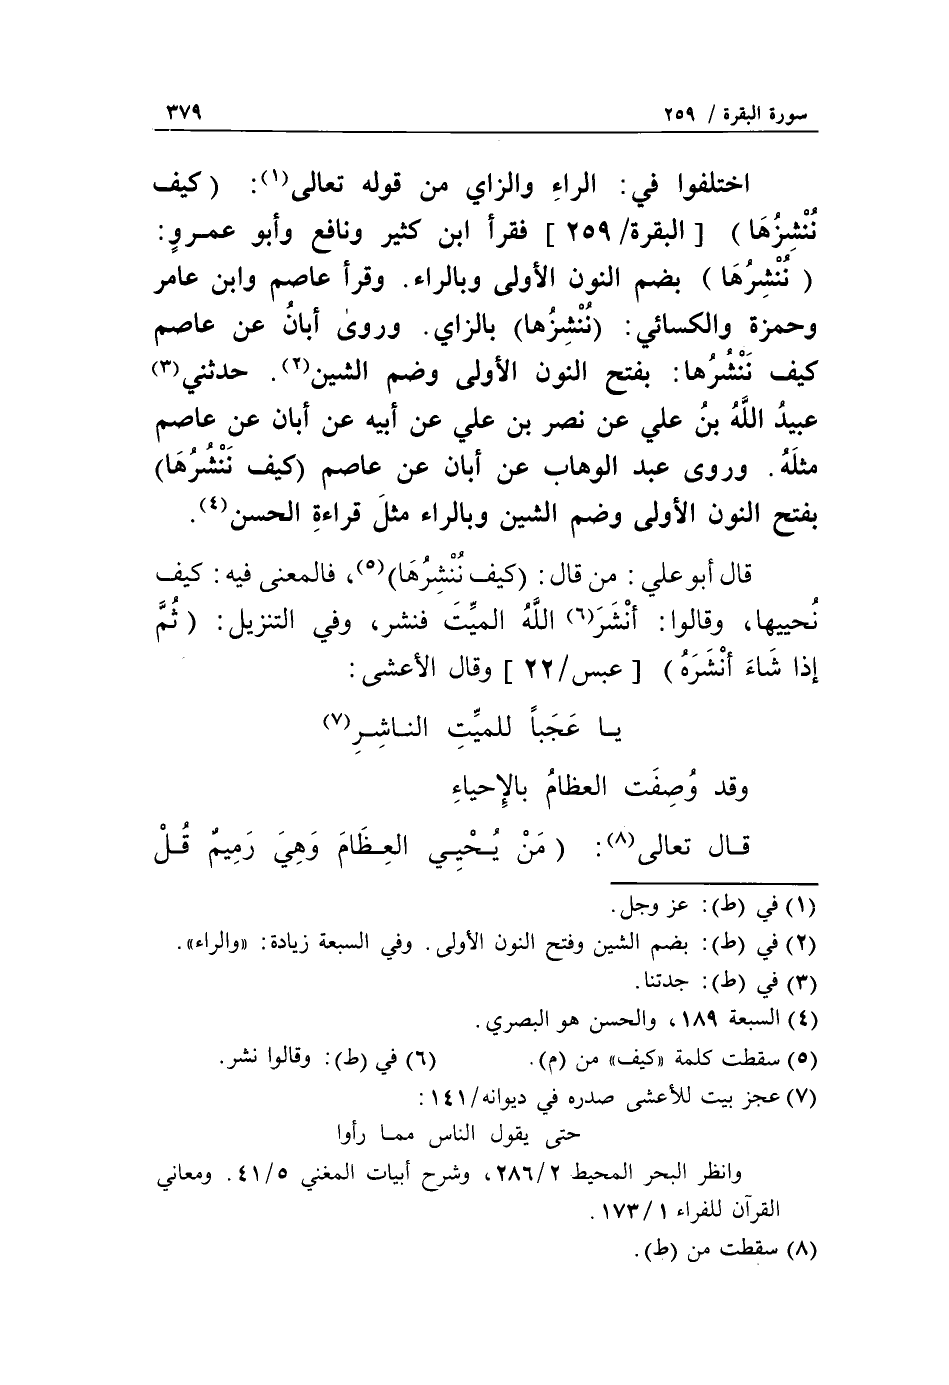 سورة البقرة / ٢٥٩ ٣٧٩
اختلفوا في: الراءِ والزاي من قوله تعالى(١): (كيف
نُنْشِزُهَا) [البقرة/ ٢٥٩] فقرأ ابن كثير ونافع وأبو عمروٍ:
(نُنْشِرُهَا) بضم النون الأولى وبالراء. وقرأ عاصم وابن عامر
وحمزة والكسائي: (نُنْشِزُها) بالزاي. وروىٰ أبانُ عن عاصم
كيف نَنْشُرُها: بفتح النون الأولى وضم الشين(٢). حدثني(٣)
عبيدُ اللَّهُ بنُ علي عن نصر بن علي عن أبيه عن أبان عن عاصم
مثلَهُ. وروى عبد الوهاب عن أبان عن عاصم (كيف نَنْشُرُهَا)
بفتح النون الأولى وضم الشين وبالراء مثلَ قراءةِ الحسن(٤).
قال أبو علي: من قال: (كيف نُنْشِرُهَا)(٥)، فالمعنى فيه: كيف
نُحييها، وقالوا: أنْشَرَ(٦) اللَّهُ الميِّتَ فنشر، وفي التنزيل: (ثُمَّ
إذا شَاءَ أنْشَرَهُ) [عبس/٢٢] وقال الأعشى:
يـا عَجَباً للميِّتِ النـاشِـرِ(٧)
وقد وُصِفَت العظامُ بالإِحياءِ
قـال تعالى(٨): (مَنْ يُـحْيِـي العِـظَامَ وَهِيَ رَمِيمٌ قُـلْ
(١) في (ط): عز وجل.
(٢) في (ط): بضم الشين وفتح النون الأولى. وفي السبعة زيادة: «والراء».
(٣) في (ط): جدتنا.
(٤) السبعة ١٨٩، والحسن هو البصري.
(٥) سقطت كلمة «كيف» من (م). (٦) في (ط): وقالوا نشر.
(٧) عجز بيت للأعشى صدره في ديوانه/١٤١:
حتى يقول الناس ممـا رأوا
وانظر البحر المحيط ٢٨٦/٢، وشرح أبيات المغني ٤١/٥. ومعاني
القرآن للفراء ١٧٣/١.
(٨) سقطت من (ط).